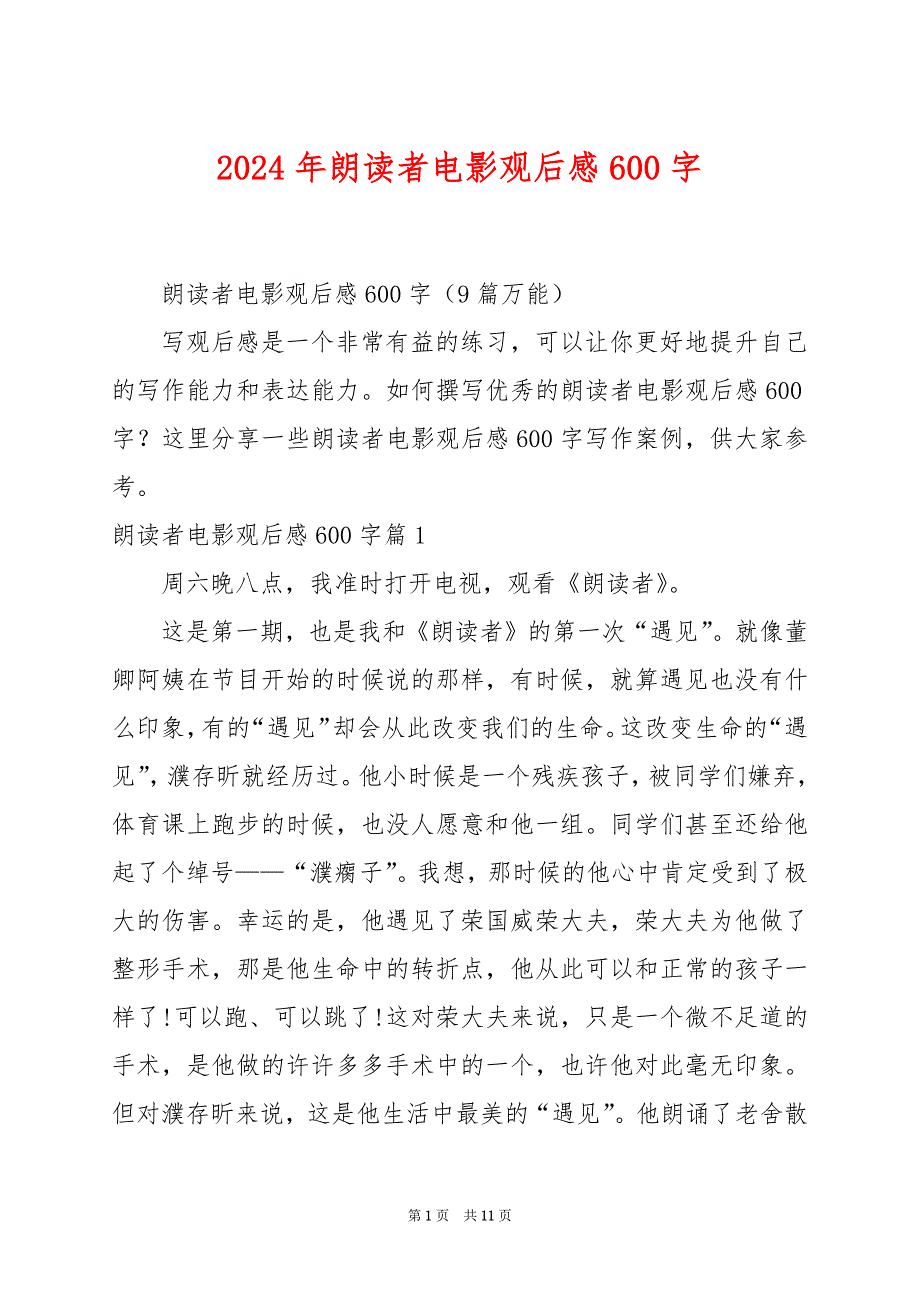 2024年朗读者电影观后感600字
朗读者电影观后感600字（9篇万能）
写观后感是一个非常有益的练习，可以让你更好地提升自己
的写作能力和表达能力。如何撰写优秀的朗读者电影观后感600
字？这里分享一些朗读者电影观后感600字写作案例，供大家参
考。
朗读者电影观后感600字篇1
周六晚八点，我准时打开电视，观看《朗读者》。
这是第一期，也是我和《朗读者》的第一次“遇见”。就像董
卿阿姨在节目开始的时候说的那样，有时候，就算遇见也没有什
么印象，有的“遇见”却会从此改变我们的生命。这改变生命的“遇
见”，濮存昕就经历过。他小时候是一个残疾孩子，被同学们嫌弃，
体育课上跑步的时候，也没人愿意和他一组。同学们甚至还给他
起了个绰号——“濮瘸子”。我想，那时候的他心中肯定受到了极
大的伤害。幸运的是，他遇见了荣国威荣大夫，荣大夫为他做了
整形手术，那是他生命中的转折点，他从此可以和正常的孩子一
样了!可以跑、可以跳了!这对荣大夫来说，只是一个微不足道的
手术，是他做的许许多多手术中的一个，也许他对此毫无印象。
但对濮存昕来说，这是他生活中最美的“遇见”。他朗诵了老舍散
第1页 共11页